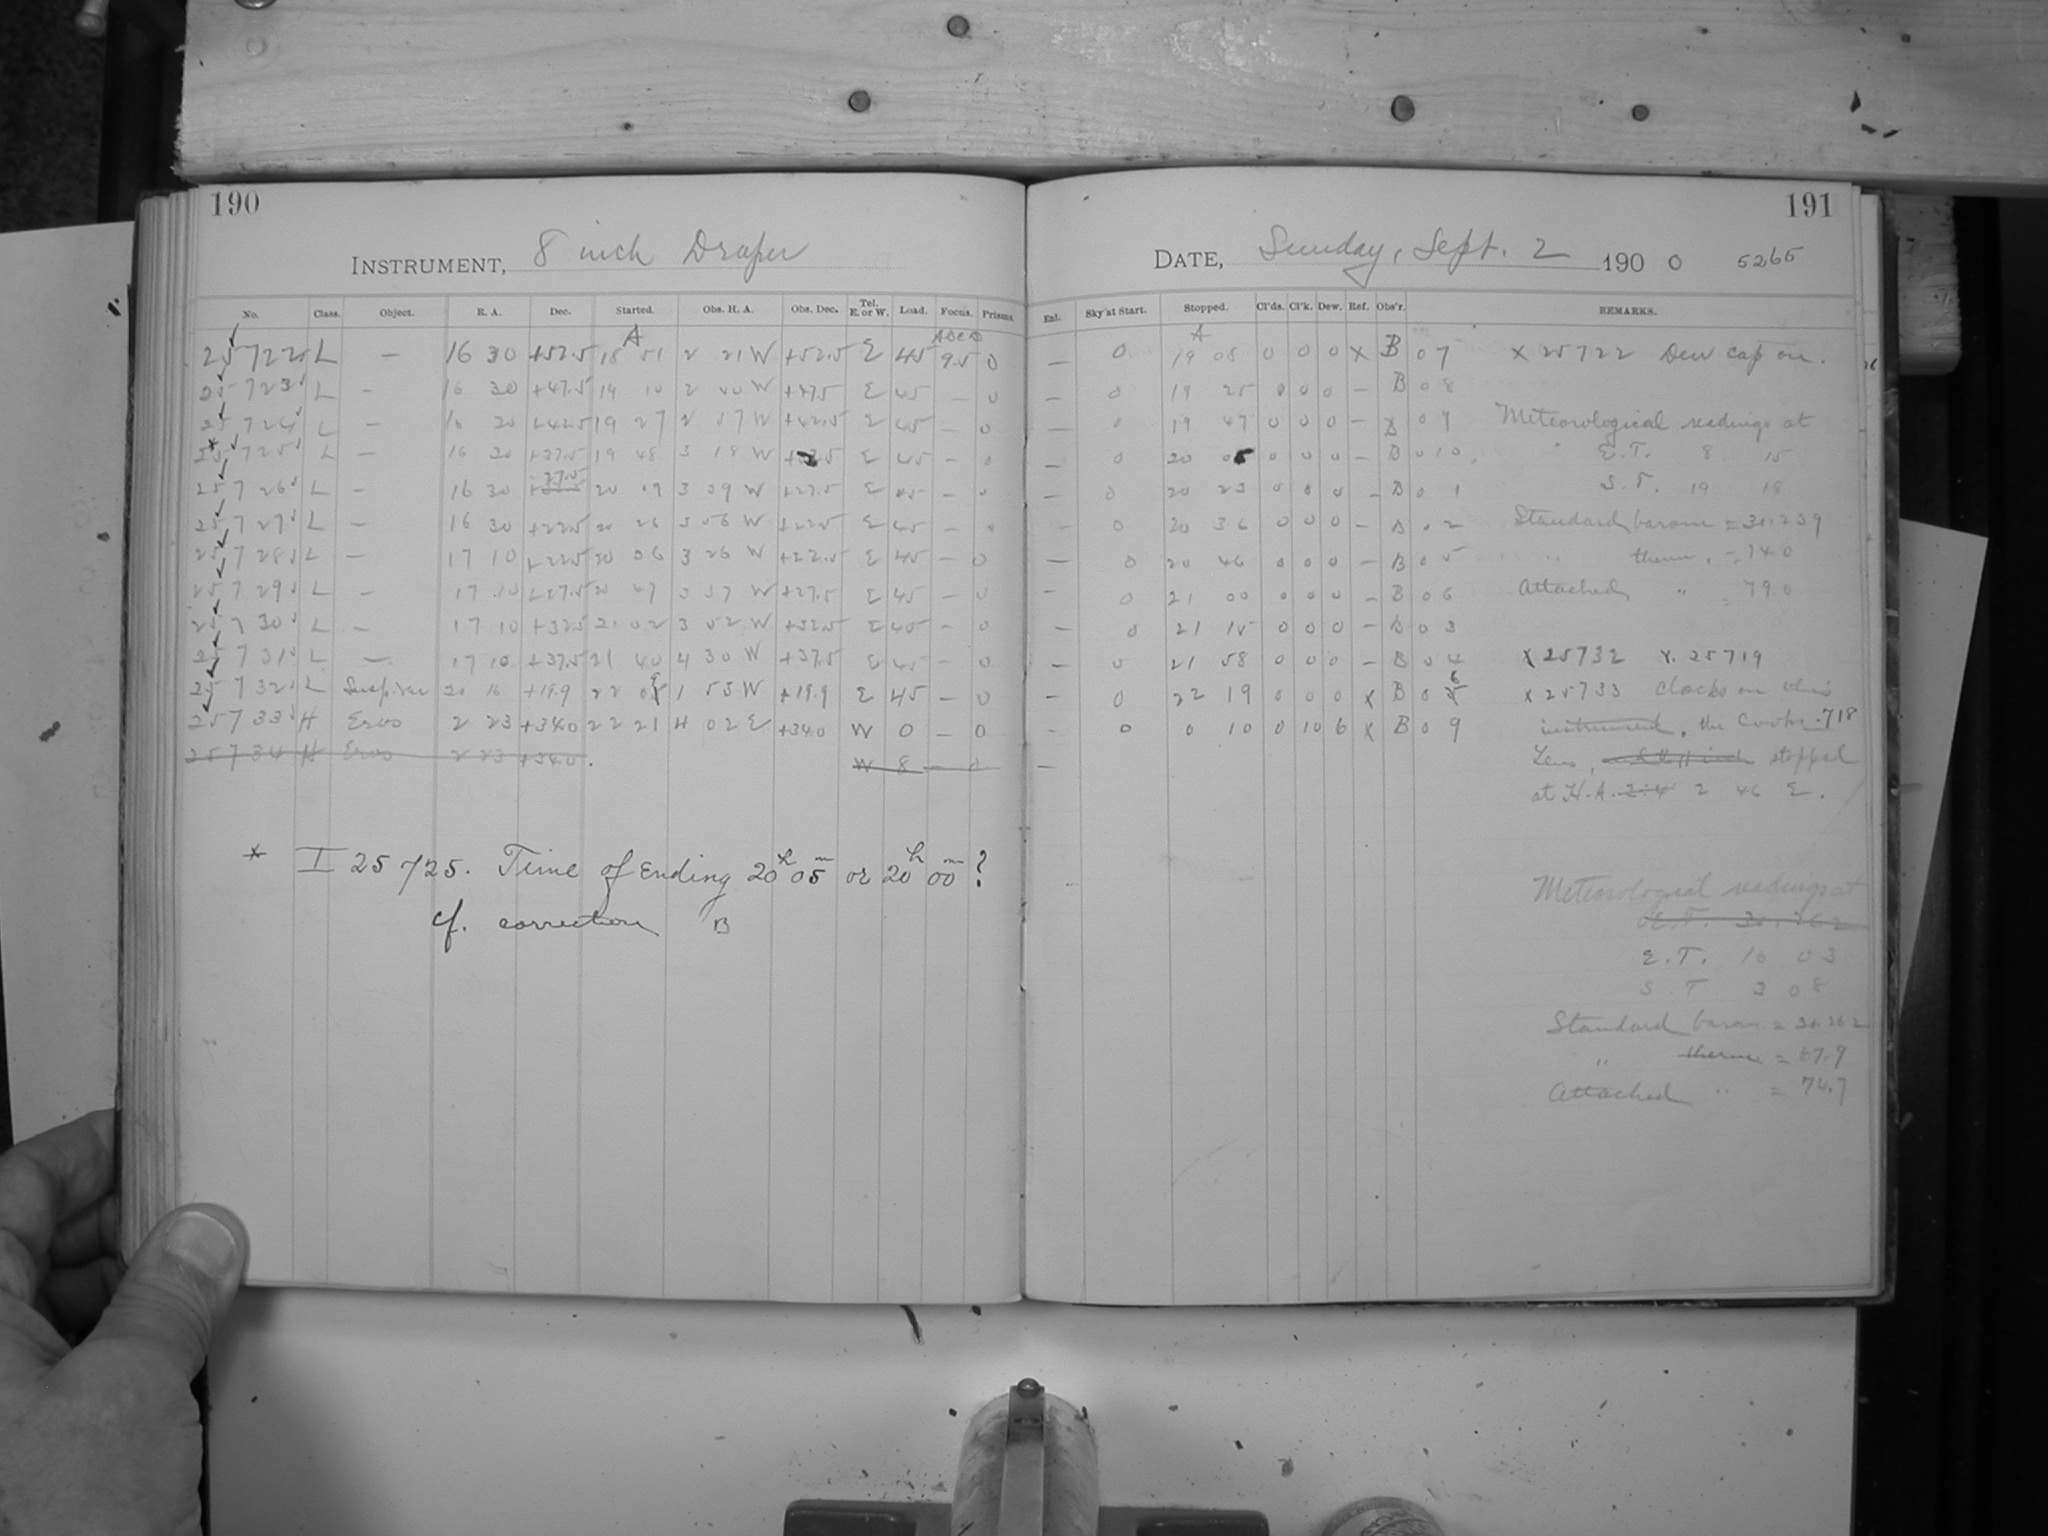 190
INSTRUMENT, 8 inch Draper
No. Class. Object. R. A. Dec. Started. Obs. H. A. Obs. Dec. Tel. E. or W. Load. Focus. Prisms.
A ABCD
25722 L — 16 30 +52.5 18 51 2 21 W +52.5 E 45 9.5 0
25723 L — 16 30 +47.5 19 10 2 40 W +47.5 E 45 — 0
25724 L — 16 30 +42.5 19 27 2 57 W +42.5 E 45 — 0
* 25725 L — 16 30 +37.5 19 48 3 18 W E 45 — 0
27.5
25726 L — 16 30 20 09 3 39 W +27.5 E 45 — 0
25727 L — 16 30 +22.5 20 26 3 56 W +22.5 E 45 — 0
25728 L — 17 10 +22.5 3 26 W +22.5 E 45 — 0
25729 L — 17 10 +27.5 20 47 3 37 W +27.5 E 45 — 0
25730 L — 17 10 +32.5 21 02 3 52 W +32.5 E 45 — 0
25731 L — 17 10 +37.5 21 40 4 30 W +37.5 E 45 — 0
25732 L 20 16 +19.9 22 1 53 W +19.9 E 45 — 0
25733 H Eros 2 23 +34.0 22 21 4 02 E +34.0 W 0 — 0
25734 H Eros 2 23 +34.0 W 8 — 0
* I 25725. Time of Ending 20h 05m or 20h 00m?
cf. correction B
191
DATE, Sunday, Sept. 2 1900 5265
Enl. Sky at Start. Stopped. Cl'ds. Cl'k. Dew. Ref. Obs'r. REMARKS.
A
— 0 19 05 0 0 0 X B 07 X 25722 Dew cap on.
— 0 19 25 0 0 0 — B 08
— 0 19 47 0 0 0 — B 09 Meteorological readings at
— 0 20 05 0 0 0 — B 010 E.T. 8 15
— 0 20 23 0 0 0 — B 0 1 S.T. 19 18
— 0 20 36 0 0 0 — B 0 2 Standard barom = 30.239
— 0 20 46 0 0 0 — B 0 5 " therm. = 74.0
— 0 21 00 0 0 0 — B 0 6 Attached " = 79.0
— 0 21 15 0 0 0 — B 0 3
— 0 21 58 0 0 0 — B 0 4 X 25732 X. 25719
— 0 22 19 0 0 0 X B 0 6 X 25733 Clocks on this
0 0 10 0 10 6 X B 0 9 instrument, the Cooke .718
— Lens, stopped
at H.A. 2.4 2 46 E.
Meteorological readings at
E.T. 30.262
E.T. 10 03
S.T. 3 08
Standard barom. = 30.262
" therm = 67.9
Attached " = 74.7